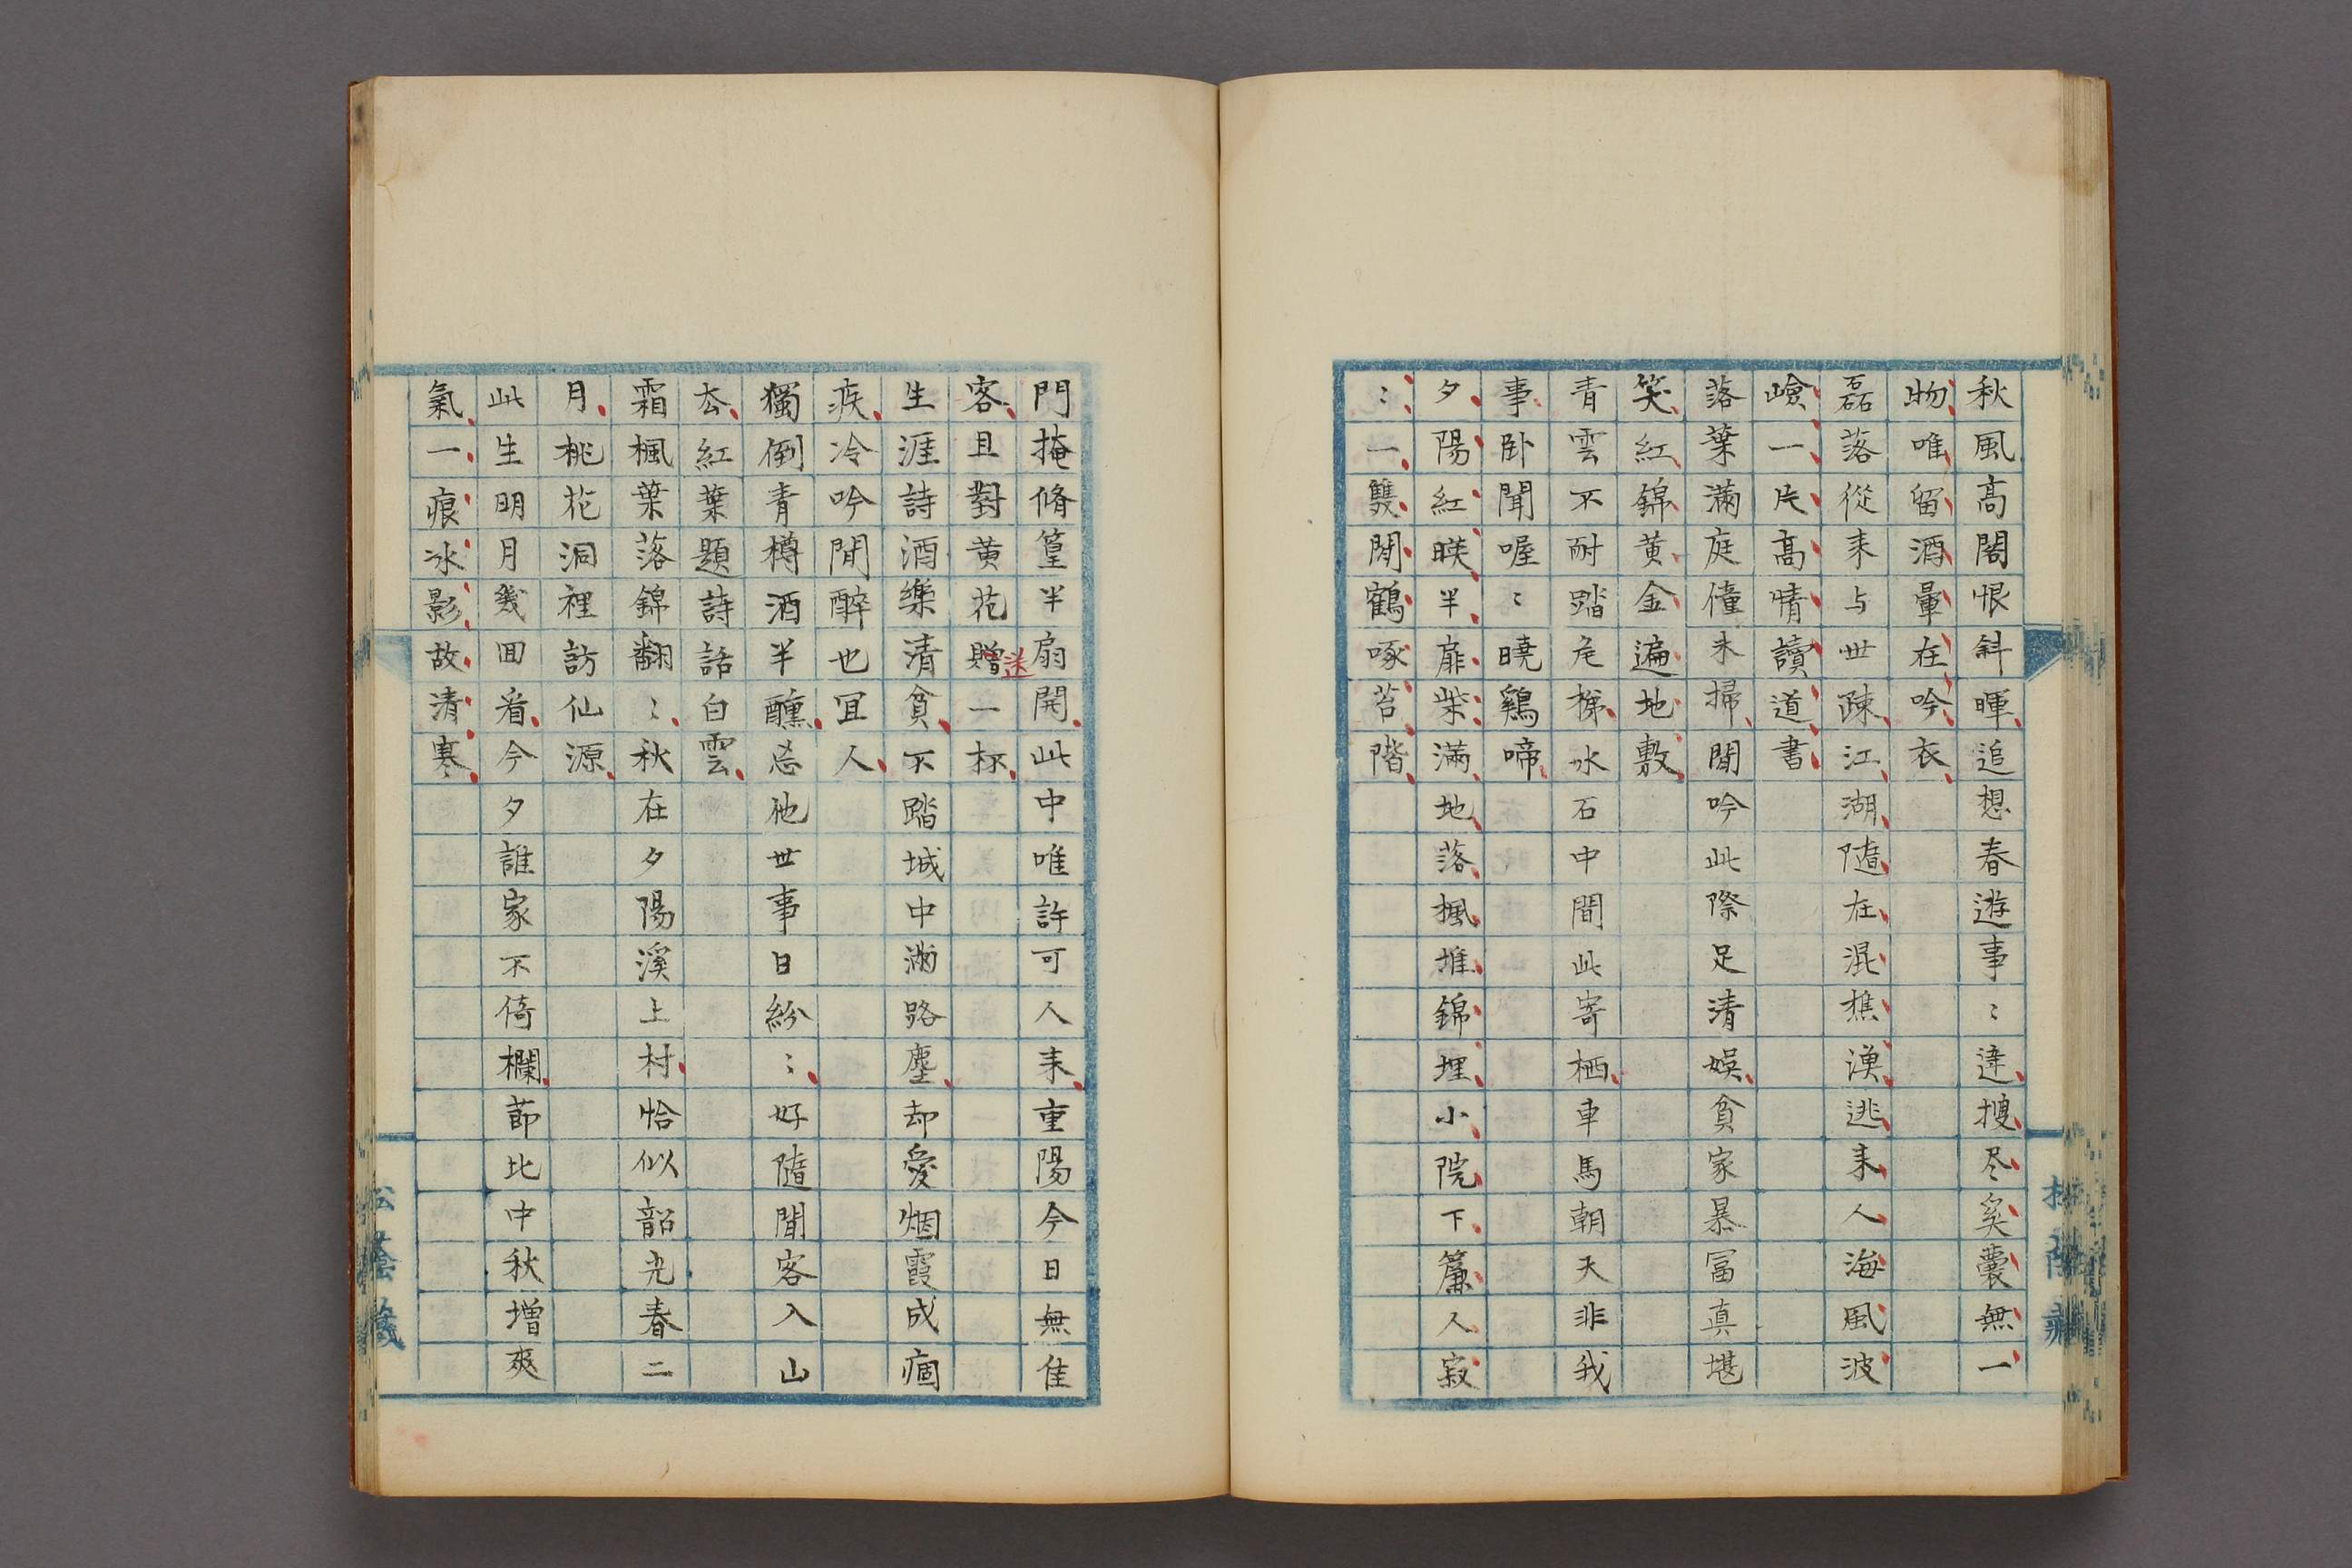 秋風高閣恨斜暉追想春遊事〻違搜尽奚囊無一
物唯留酒暈在吟衣
磊落從来与世疎江湖随在混樵漁逃来人海風波
嶮一片高情讀道書
落葉滿庭僮未掃閒吟此際足清娯貧家暴冨真堪
笑紅錦黄金遍地敷
青雲不耐踏危梯水石中間此寄栖車馬朝天非我
事卧聞喔〻暁鷄啼
夕陽紅暎半扉柴滿地落楓堆錦埋小院下簾人寂
〻一雙閒鶴啄苔階
門掩脩篁半扇開此中唯許可人来重陽今日無佳
客且對黄花贈一杯
送
生涯詩酒樂清貧不踏城中滿路塵却愛烟霞成痼
疾冷吟閒醉也冝人
獨倒青樽酒半醺忘他世事日紛〻好随閒客入山
去紅葉題詩話白雲
霜楓葉落錦翻〻秋在夕陽溪上村恰似韶光春二
月桃花洞裡訪仙源
此生明月幾回看今夕誰家不倚欄節比中秋增爽
氣一痕冰影故清寒
松蔭藏